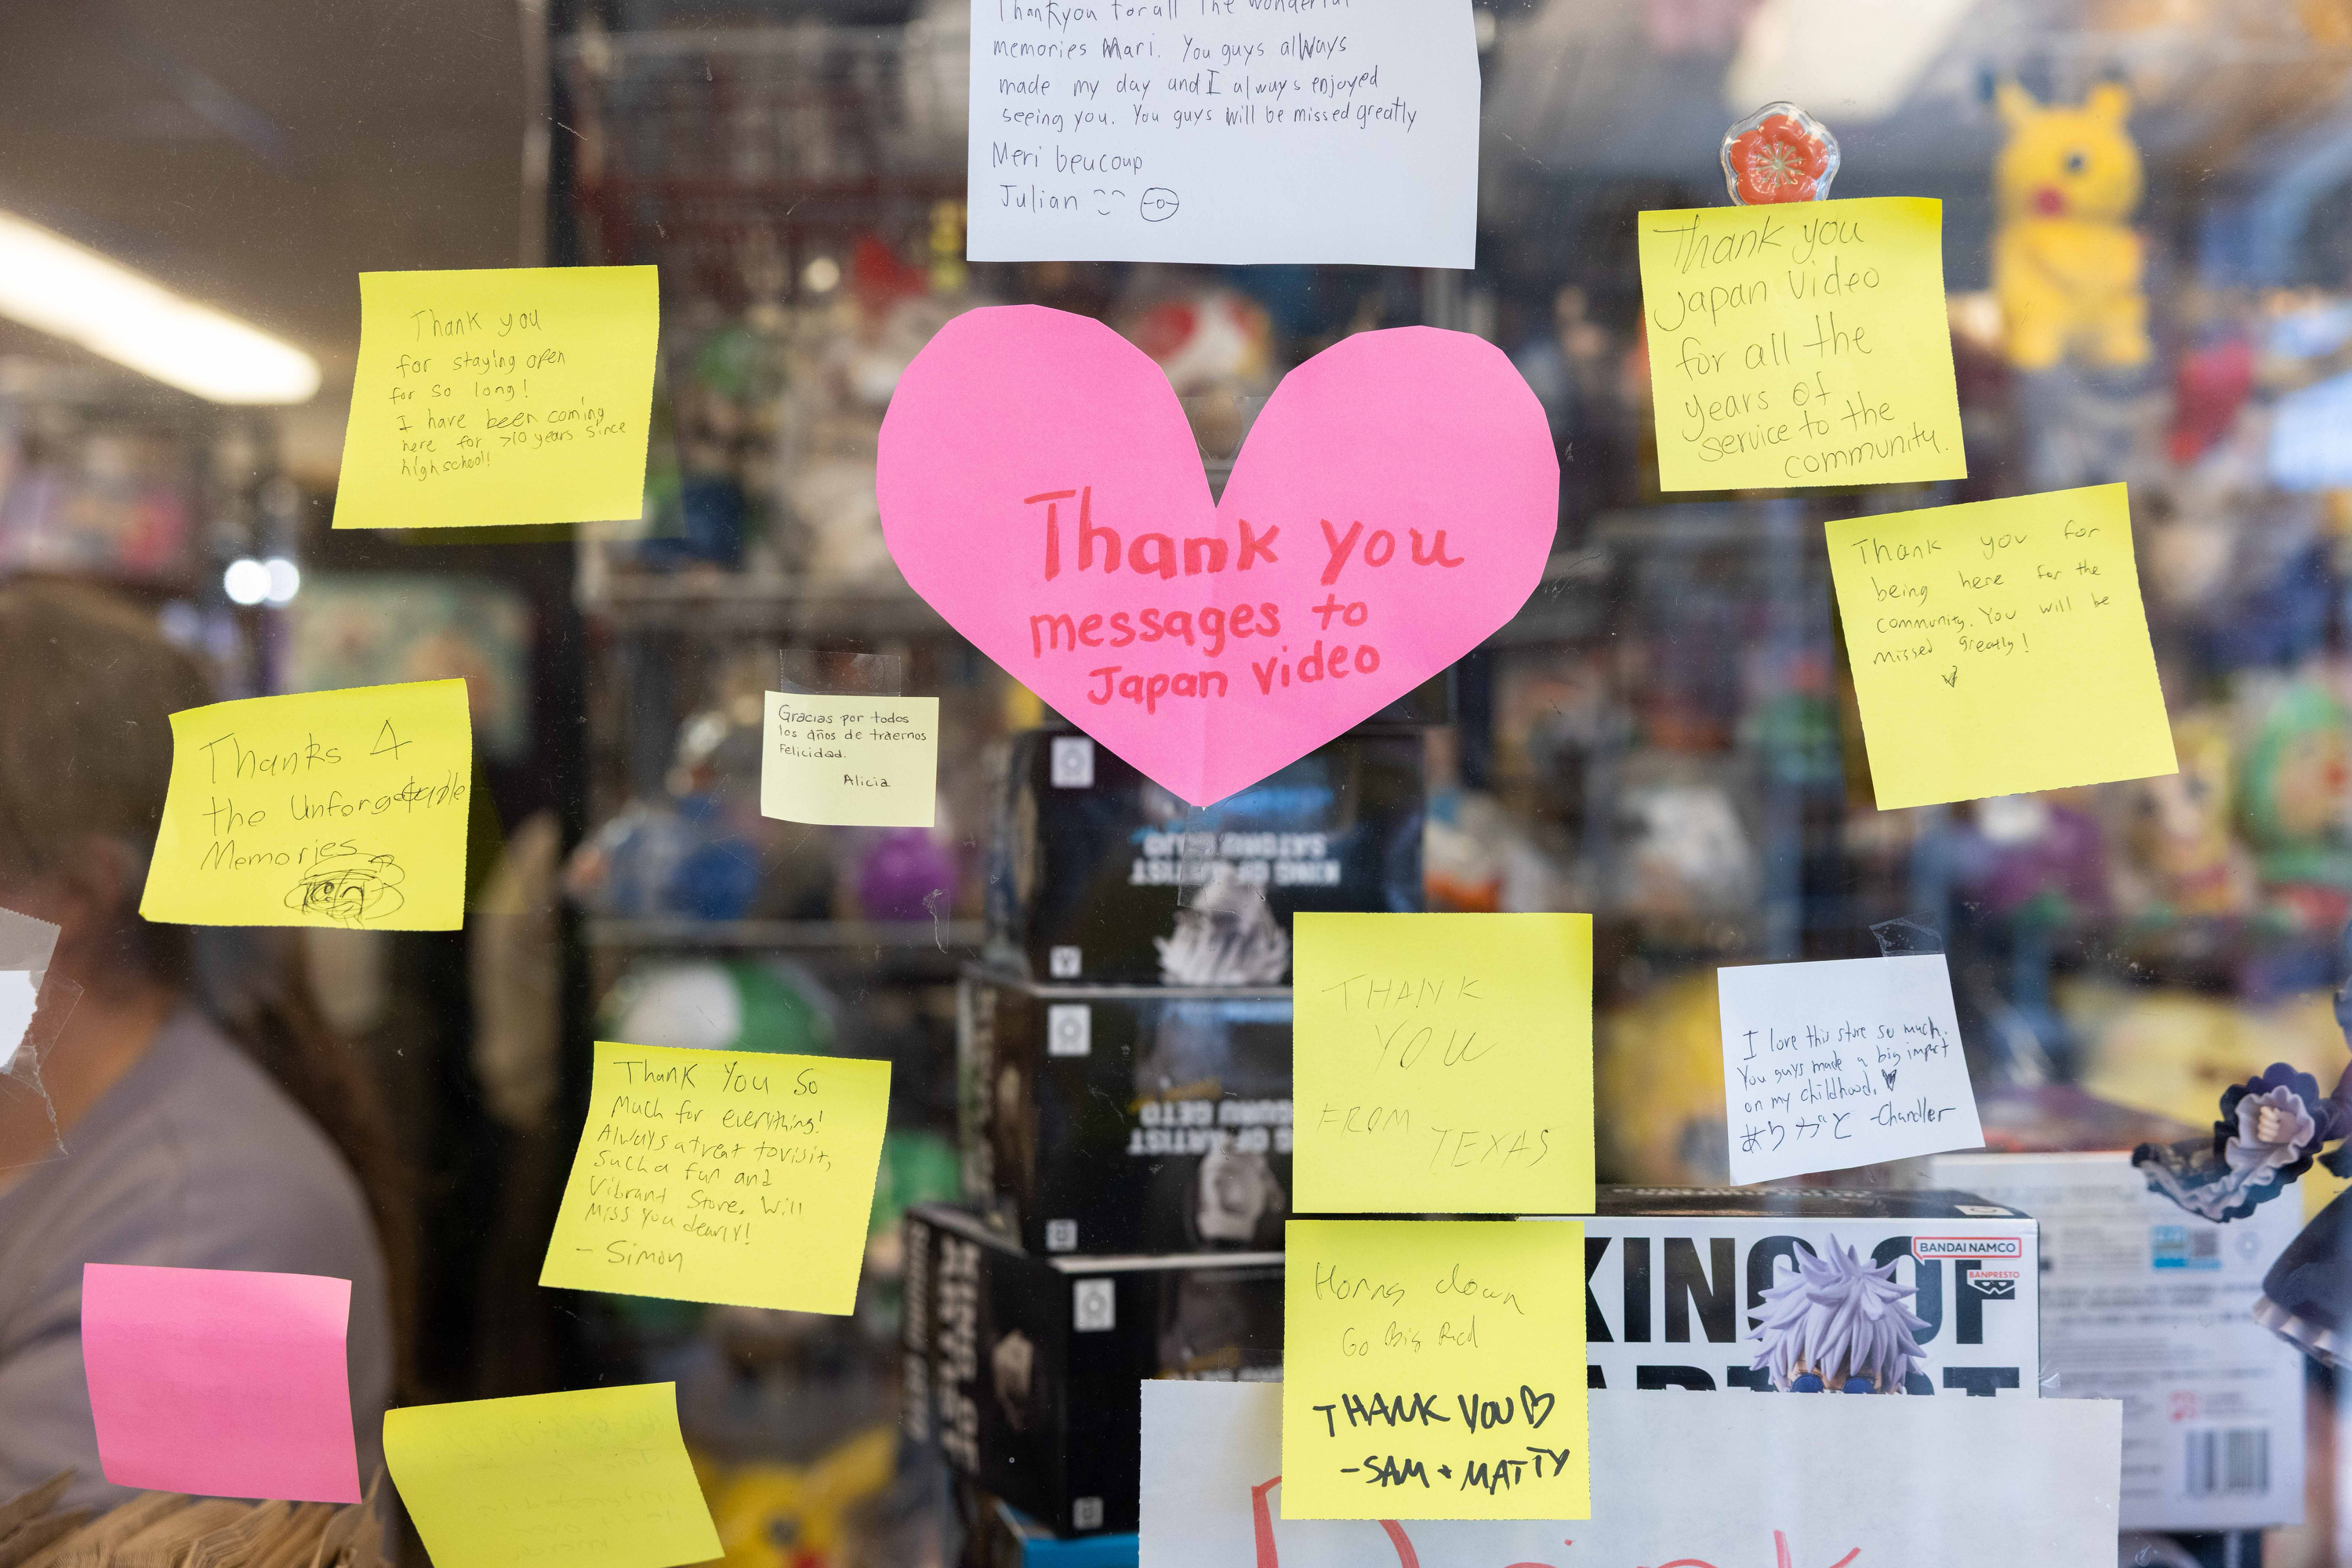 Thankyou for all the wonderful
memories Mari. You guys always
made my day and I always enjoyed
seeing you. You guys will be missed greatly
Meri beucoup
Julian
Thank you
for staying open
for so long!
I have been coming
here for >10 years since
highschool!
Thank you
messages to
Japan video
Thank you
Japan Video
for all the
years of
service to the
community.
Thank you for
being here for the
community. You will be
missed greatly!
Thanks 4
the Unforgettable
Memories
Gracias por todos
los años de traernos
Felicidad.
Alicia
Thank You So
Much for everything!
Always a treat to visit,
Such a fun and
Vibrant Store. Will
Miss you dearly!
- Simon
THANK
YOU
FROM TEXAS
I love this store so much.
You guys made a big impact
on my childhood.
ありがと -Chandler
Horns down
Go Big Red
THANK YOU
-SAM + MATTY
KING OF ARTIST
SATORU GOJO
KING OF ARTIST
SUGURU GETO
KING OF
BANDAI NAMCO
BANPRESTO
Drink